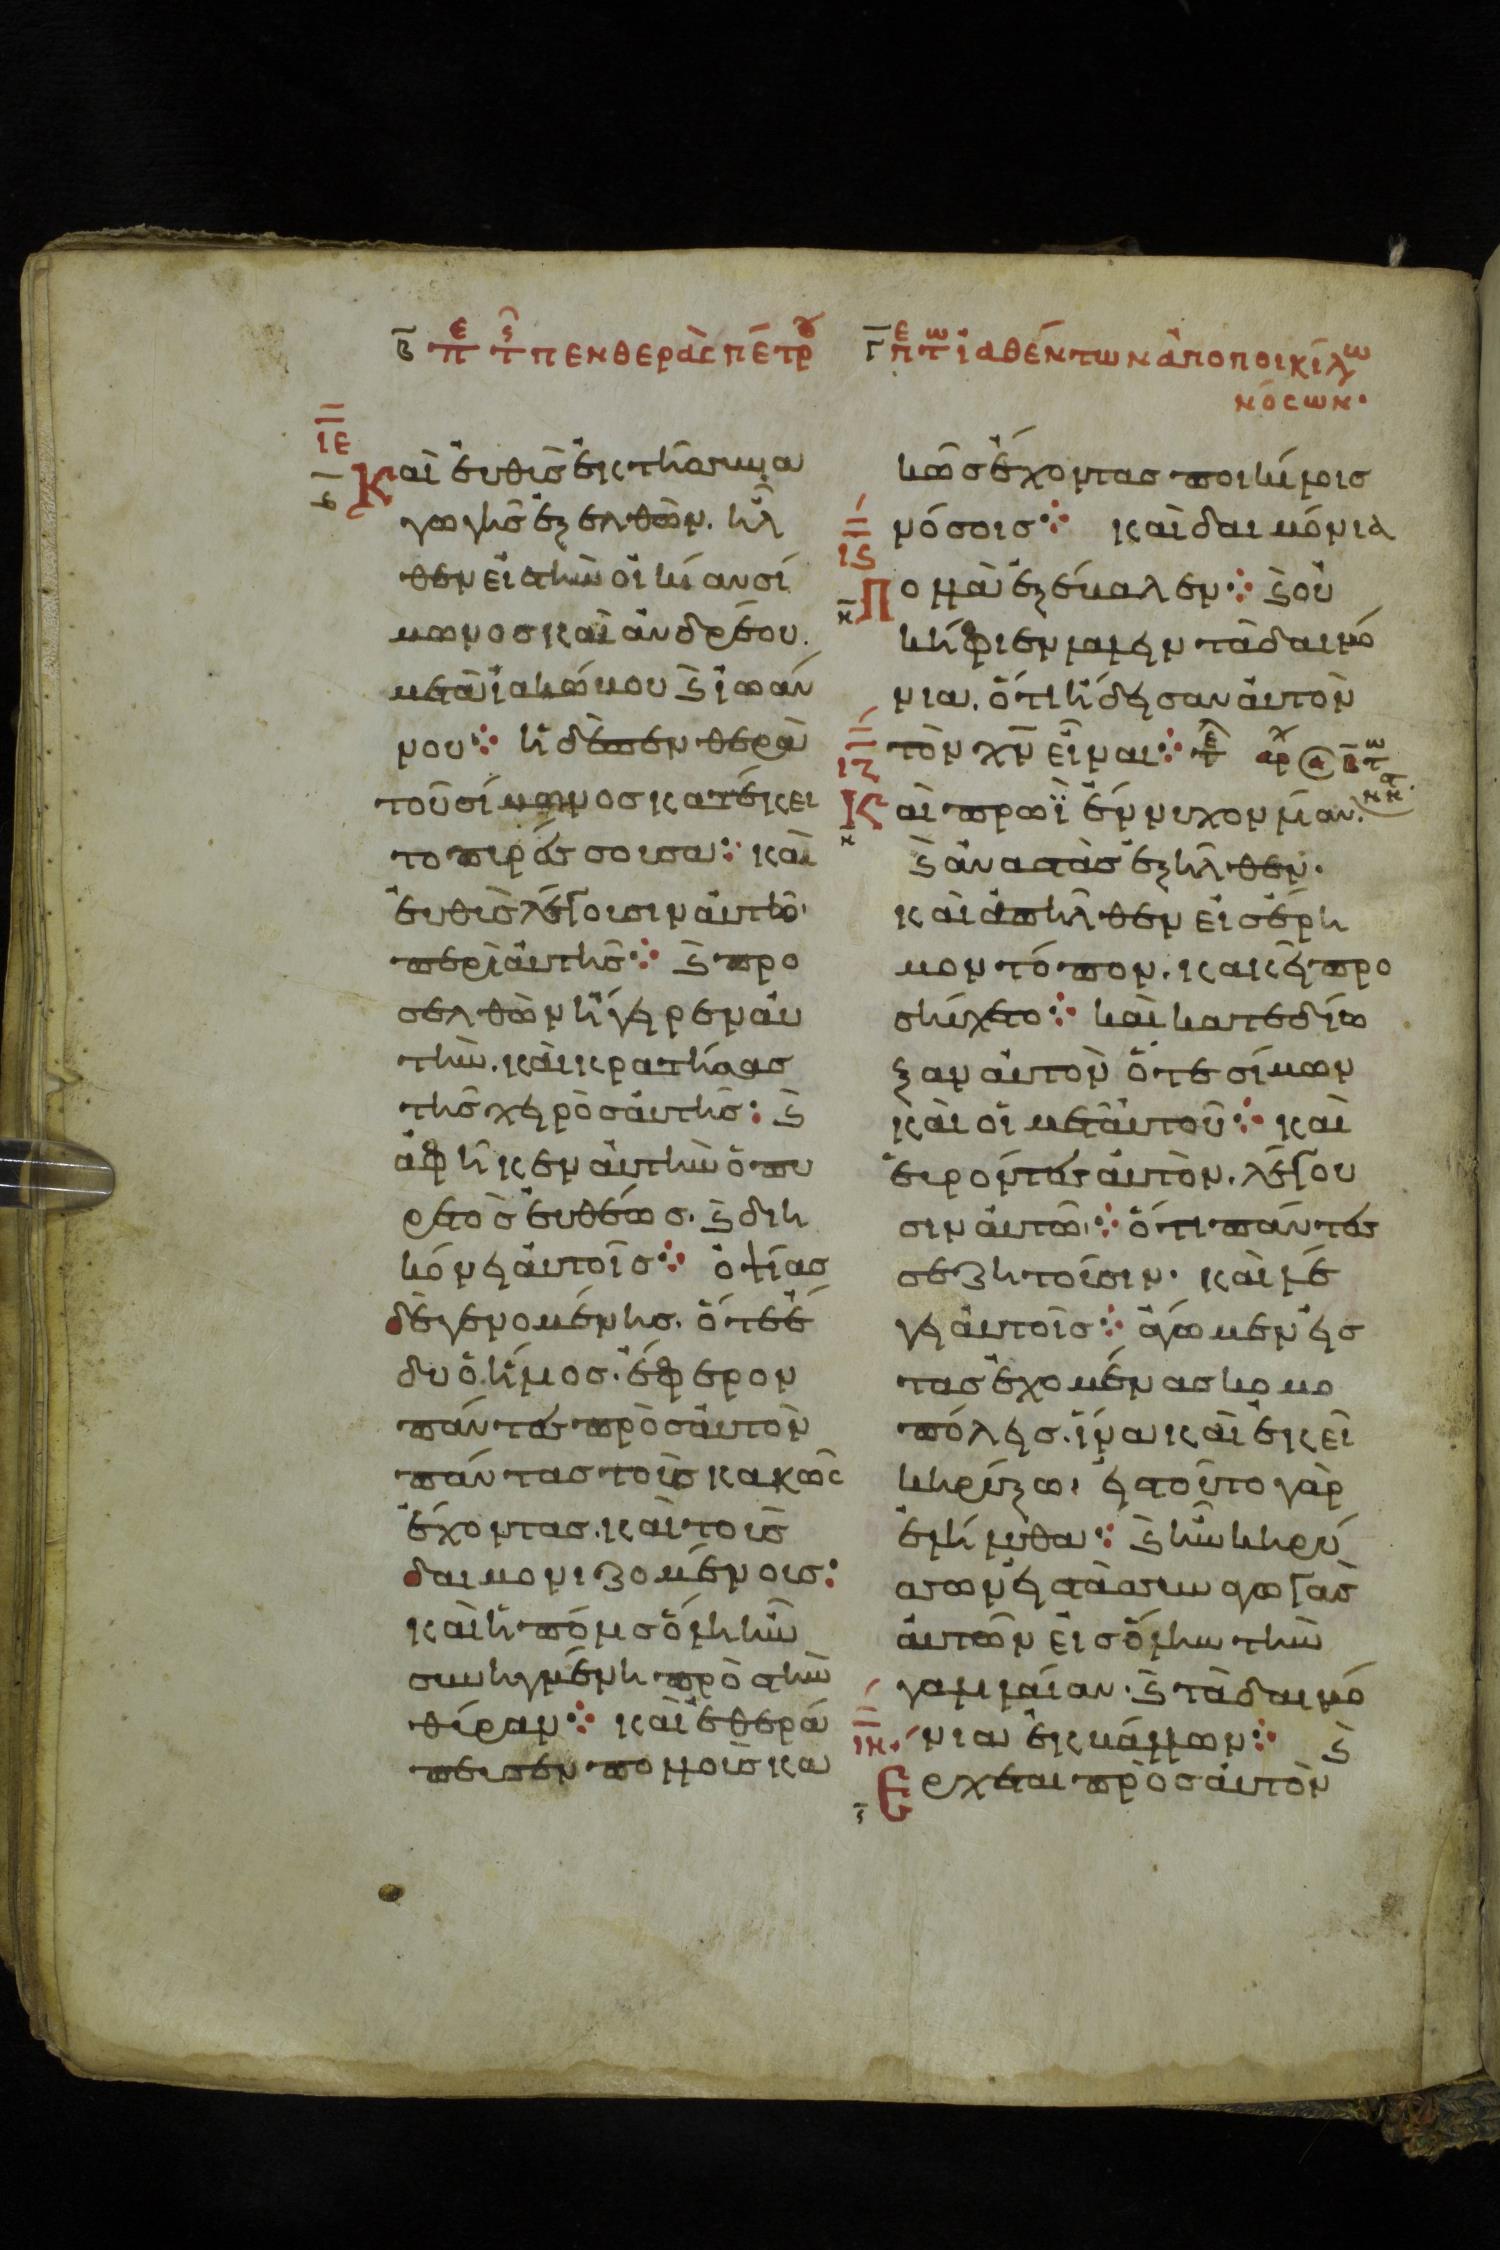 β πε τς πενθερὰς πέτρου
γ πε τω ἰαθέντων ἀπο ποικίλω
νόσων·
ιε
Και ἐυθὺς ἐκ τῆς συνα
β
γωγῆς ἐξελθὼν. ἦλ
θεν εἰς τὴν οἰκίαν σί
μωνος καὶ ἀνδρέου.
μετὰ ἰακώμου ϗ ἰωάν
νου· ἡ δὲ πενθερὰ
τοῦ σίμωνος κατέκει
το πυρέσσουσα· καὶ
ἐυθὺς λέγουσιν ἀυτῶ·
περὶ ἀυτῆς· ϗ προ
σελθὼν ἤγειρεν ἀυ
τὴν. καὶ κρατήσας
τῆς χειρὸς ἀυτῆς· ϗ
ἀφῆκεν ἀυτὴν ὁ πυ
ρετὸς ἐυθέως. ϗ διη
κόνει ἀυτοῖς· ὀψίας
δὲ γενομένης. ὅτε ἔ
δυ ὁ ἥλιος. ἔφερον
πάντες πρὸς ἀυτὸν
πάντας τοὺς κακῶς
ἔχοντας. καὶ τοὺς
δαιμονιζομένους·
καὶ ἡ πόλις ὅλη ἦν
συνηγμένη πρὸς τὴν
θύραν· καὶ ἐθερά
πευσεν πολλοὺς κα
κῶς ἔχοντας ποικίλοις
νόσοις· καὶ δαιμόνια
ις
Πολλὰ ἐξέβαλεν· ϗ οὐ
η
κ ἤφιεν λαλεῖν τὰ δαιμό
νια. ὅτι ἤδεισαν ἀυτὸν
τὸν χν εἶναι· τε αρχ
ιζ
Και πρωῒ ἔννυχον λίαν.
η
ϗ ἀναστὰς ἐξῆλθεν.
καὶ ἀπῆλθεν εἰς ἔρη
μον τόπον. κακεῖ προ
σηύχετο· καὶ κατεδίω
ξαν ἀυτὸν ὅτε σίμων
καὶ οἱ μετ ἀυτοῦ· καὶ
ἑυρόντες ἀυτὸν. λέγου
σιν ἀυτῶ· ὅτι πάντες
σε ζητοῦσιν. καὶ λέ
γει ἀυτοῖς· ἄγωμεν εἰς
τὰς ἐχομένας κωμο
πόλεις. ἵνα καὶ ἐκεῖ
κηρύξω· εἰς τοῦτο γὰρ
ἐλήλυθα· ϗ ἦν κηρύ
σσων εἰς τὰς συναγωγὰς
ἀυτῶν εἰς ὅλην τὴν
γαλιλαίαν. ϗ τὰ δαιμό
νια ἐκβάλλων· ϗ
ιη
Ερχεται πρὸς ἀυτὸν
ι